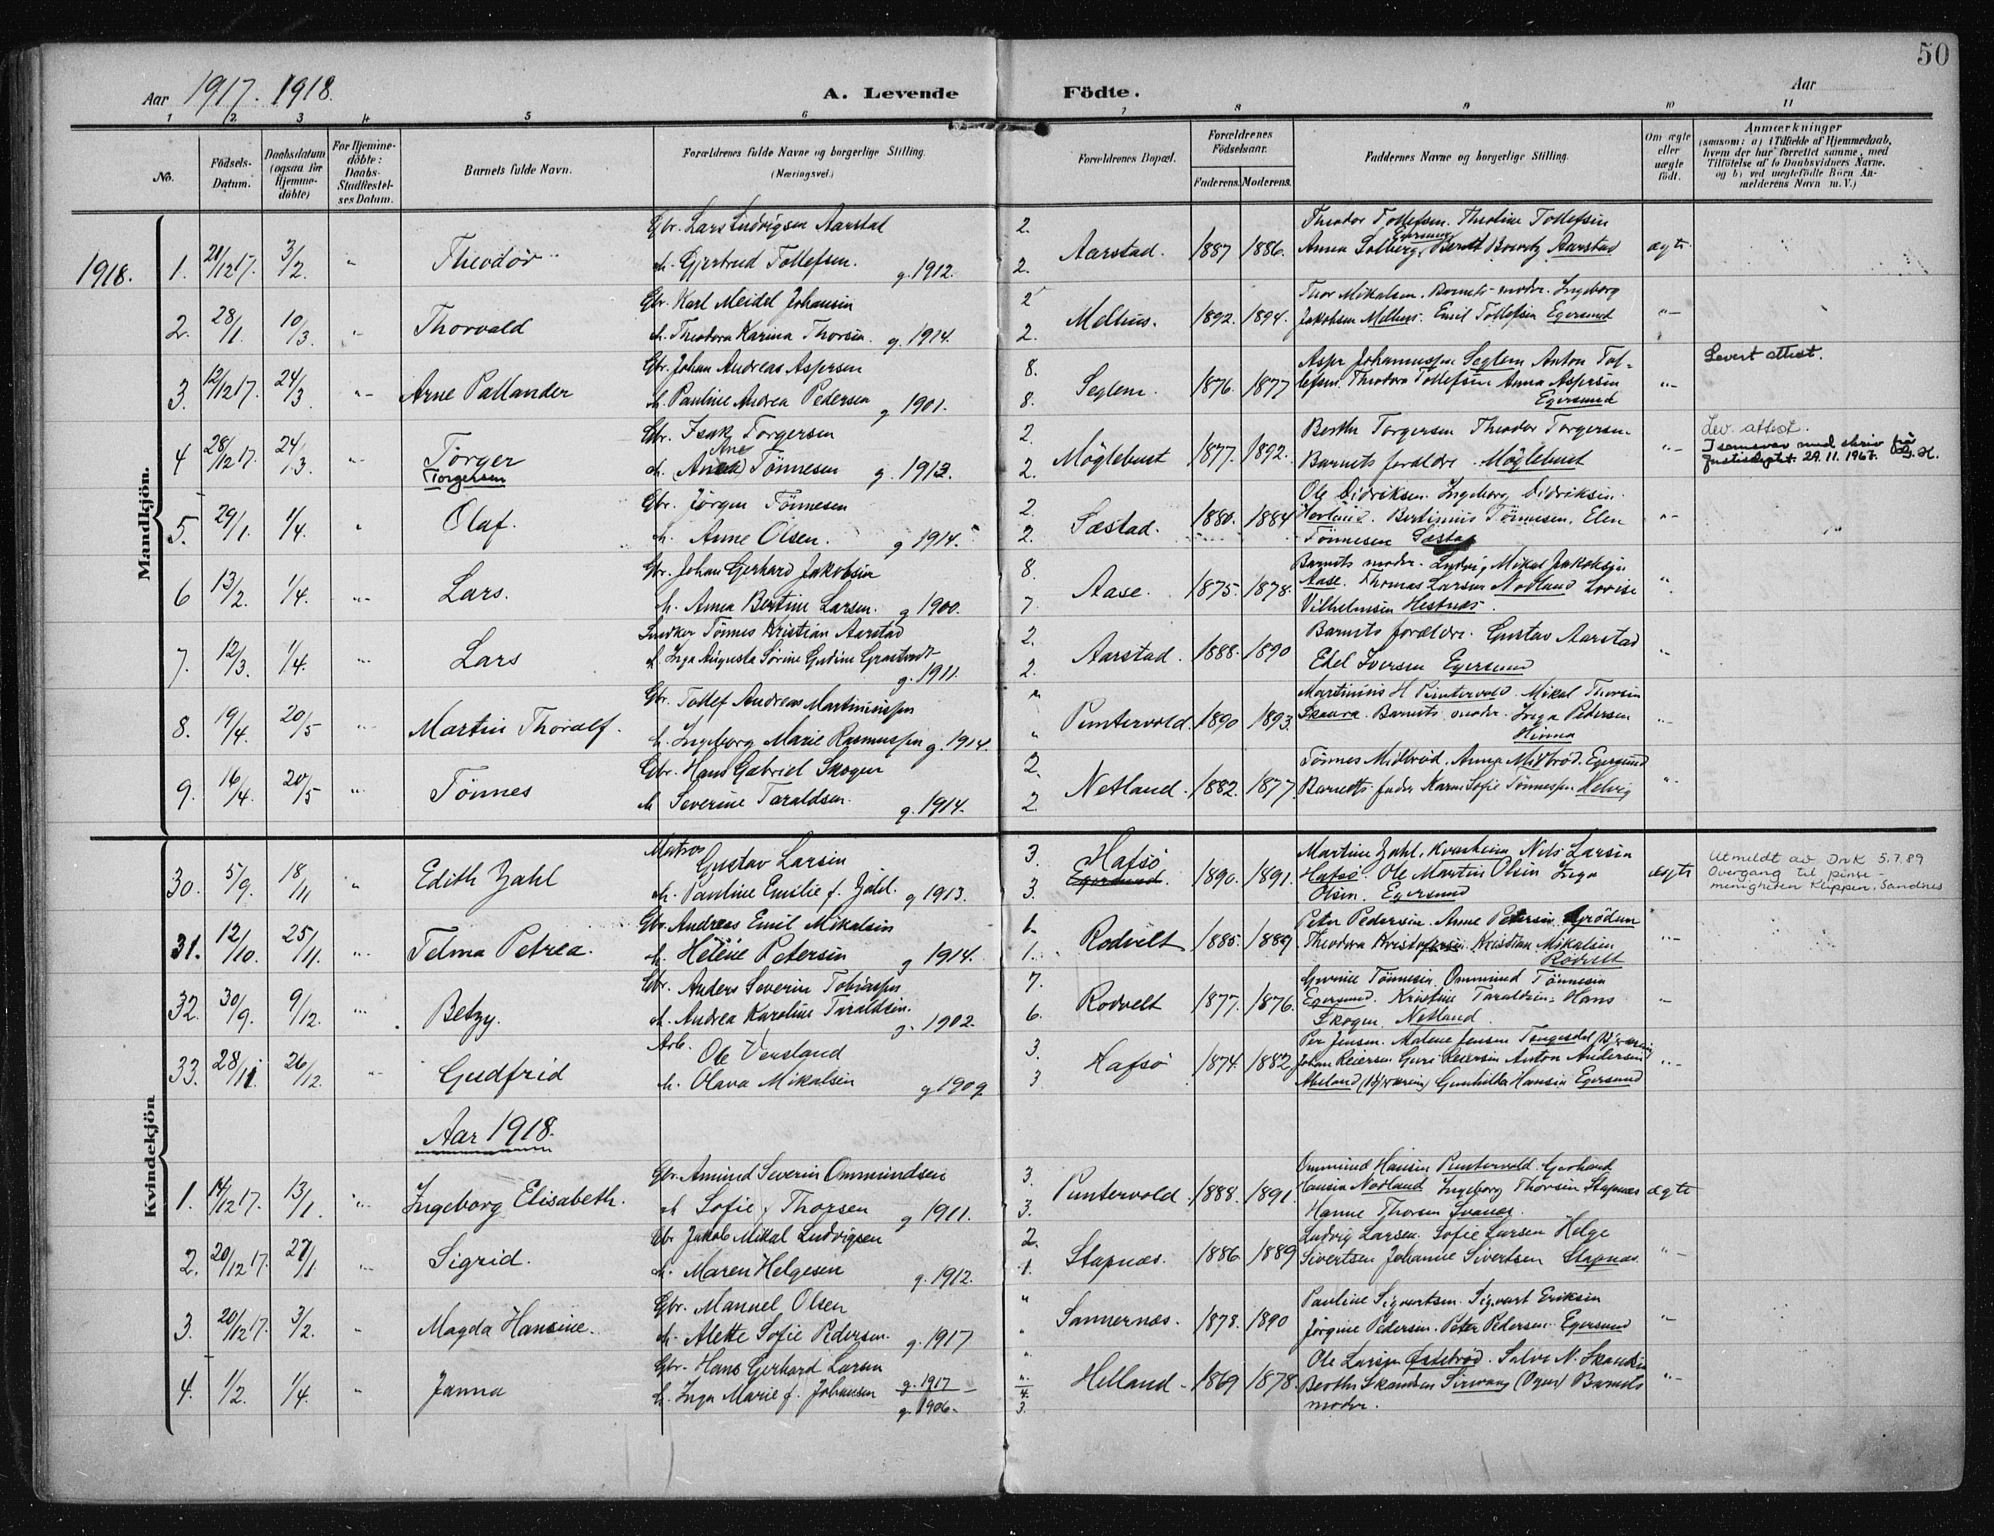 50
Aar 1917. 1918.
A. Levende Födte.
Aar
1 2 3 4 5 6 7 8 9 10 11
No.
Födsels-Datum.
Daabsdatum (ogsaa for Hjemmedöbte)
For Hjemmedöbte: Daabs-Stadfestelses Datum.
Barnets fulde Navn.
Forældrenes fulde Navne og borgerlige Stilling.
(Næringsvei.)
Forældrenes Bopæl.
Forældrenes Födselsaar.
Faderens. Moderens.
Faddernes Navne og borgerlige Stilling.
Om ægte eller uægte født.
Anmærkninger
(saasom: a) i Tilfælde af Hjemmedaab, hvem der har forrettet samme, med Tilföielse af to Daabsvidners Navne, og b) ved uægtefödte Börn Anmelderens Navn m. V.)
Mandkjön.
1918.
1. 21/12 17. 3/2. " Theodor
Gbr. Lars Ludvigsen Aarstad
h. Gjertrud Tollefsen. g. 1912.
2. 2. Aarstad. 1887 1886.
Theodor Tollefsen. Theoline Tollefsen
Anna Solberg, Egersund Berett Aarstad ægte
2. 28/1. 10/3. " Thorvald
Gbr. Karl Meidel Johansen
h. Theodora Karina Thorsen. g. 1914.
2 2. Melhus. 1892. 1894.
Thor Mikalsen. Barnets moder. Ingeborg
Jakobsen Melhus. Emil Tollefsen Egersund "-
3. 12/12 17. 24/3. " Arne Pallander
Gbr. Johan Andreas Aspersen
h. Pauline Andrea Pedersen g 1901.
8. 8. Seglem. 1876. 1877
Asper Johannessen Seglem Anton Tol-
lefsen. Theodora Tollefsen Anna Aspersen
Egersund "-
Levert attest.
4 28/12 17. 24/3. " Torger
Torgersen
Gbr. Isak Torgersen
h. Ane Tönnesen g. 1913.
2. 2. Möglebust 1877. 1892.
Berthe Torgersen Theodor Torgersen.
Barnets forældre Möglebust "-
Lev. attest.
I samsvar med skriv frå
Justisdept. 29.11.1967.
5. 29/1. 1/4. " Olaf.
Gbr. Jörgen Tönnesen
h. Anne Olsen. g 1914.
2. 2. Sæstad. 1880. 1884
Ole Didriksen. Ingeborg Didriksen.
Hovland. Bertinius Tönnesen, Elen
Tönnesen Sæstad "-
6 13/2. 1/4. " Lars.
Gbr. Johan Gerhard Jakobsen
h. Anna Bertine Larsen. g 1900.
8. 7. Aase. 1875. 1878.
Barnets moder. Ludvig Mikal Jakobsen
Aase. Thomas Larsen Nodland Lovise
Vilhelmsen Hestnes. "
7. 12/3. 1/4. " Lars
Snedker Tönnes Kristian Aarstad
h. Inga Augusta Sörine g. 1911.
2. 2. Aarstad. 1888. 1890
Barnets forældre. Gustav Aarstad
Edel Iversen Egersund "
8. 19/4. 20/5 " Martin Thoralf.
Gbr. Tollef Andreas Martiniussen
h. Ingeborg Marie Rasmussen g. 1914.
" " Puntervold. 1890 1893.
Martinius H Puntervold. Mikal Thorsen
Skaara. Barnets moder. Inga Pedersen
Hinna "-
9. 16/4. 20/5 " Tönnes
Gbr. Hans Gabriel Skogen
h Severine Taraldsen. g. 1914.
2. 2. Netland. 1882. 1877.
Tönnes Midbrød. Anna Midbrød. Egersund
Barnets fader Karen Sofie Tönnessen Helvig "
Kvindekjön
30. 5/9. 18/11 " Edith Zahl
Matros Gustav Larsen
h. Pauline Emilie f. Zahl. g 1913.
3. 3. Hafsö Egersund. 1890. 1891.
Martine Zahl, Kvasheim Nils Larsen
Hafsö. Ole Martin Olsen Inga
Olsen. Egersund ægte
Utmeldt av DnK 5.7.89
Overgang til pinse-
menigheten Klippen, Sandnes
31. 12/10. 25/11. " Telma Petrea.
Gbr. Andreas Emil Mikalsen
h. Helene Petersen g 1914.
1. 1. Rodvelt 1885. 1889
Peter Pedersen. Anne Petersen Grödem
Theodora Kristofersen Kristian Mikalsen
Rodvelt "-
32. 30/9. 9/12. " Betzy.
Gbr. Anders Severin Tobiassen
h. Andrea Karoline Taraldsen. g. 1902.
7. 6. Rodvelt 1877. 1876.
Gurine Tönnesen Ommund Tönnesen
Egersund. Kristine Taraldsen. Hans
Skogen. Netland. "
33. 28/11. 26/12. " Gudfrid
Arb. Ole Versland
h. Olava Mikalsen g 1909
3. 3 Hafsö 1874. 1882
Per Jensen. Malene Jensen Tengesdal (Bjerkreim)
Johan Reiersen Guri Reiersen Anton Andersen
Gunhilde Hansen Egersund "-
Aar 1918.
1. 14/12 17. 13/1. " Ingeborg Elisabeth.
Gbr. Amund Severin Ommundsen
h Sofie f Thorsen g 1911.
3. 3. Puntervold. 1888. 1891.
Ommund Hansen Puntervold. Gerhard
Hansen Nodland Ingeborg Thorsen Stapnæs
Hanne Thorsen Svanes. ægte
2. 20/12 17. 27/1 " Sigrid.
Gbr Jakob Mikal Ludvigsen
h. Maren Helgesen g. 1912.
2. 1. Stapnæs. 1886. 1889
Ludvig Larsen. Sofie Larsen Helge
Sivertsen Johanne Sivertsen Stapnæs "-
3. 20/12 17. 3/2. " Magda Hansine.
Gbr. Manuel Olsen
h. Alette Sofie Pedersen. g. 1917
" " Sannernæs. 1878. 1890
Pauline Sigvartsen. Sigvart Eriksen
Jörgine Pedersen. Peter Pedersen Egersund "-
4. 1/2. 1/4 " Janna
Gbr. Hans Gerhard Larsen
h. Inga Marie f. Johansen g. 1917 g. 1906.
" 4. 3. Helland. 1869 1878.
Ole Larsen Østebrød.
Berthe Skandsen Sirevaag (Ogne) Barnets
moder. "-